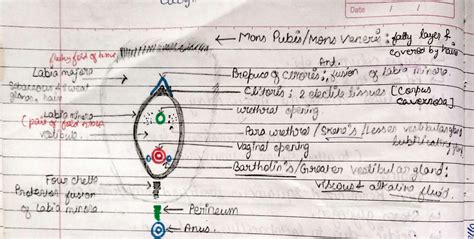 Date
← Mons Pubis/Mons Veneris : fatty layer &
covered by hair
fleshy fold of tissue,
Labia majora
Sebaceous & sweat
glands, hair
Ant.
Prepuce of clitoris; fusion of labia minora.
Clitoris; 2 erectile tissues [Corpus
cavernosa]
urethral opening
Labia minora
(pair of fold
vestibule
Para urethral/Skene's/lesser vestibular gland
Vaginal opening
Bartholin's/Greater vestibular gland;
Viscous & alkaline fluid.
Four chette
Posterior fusion
of labia minora.
← Perineum
← Anus.